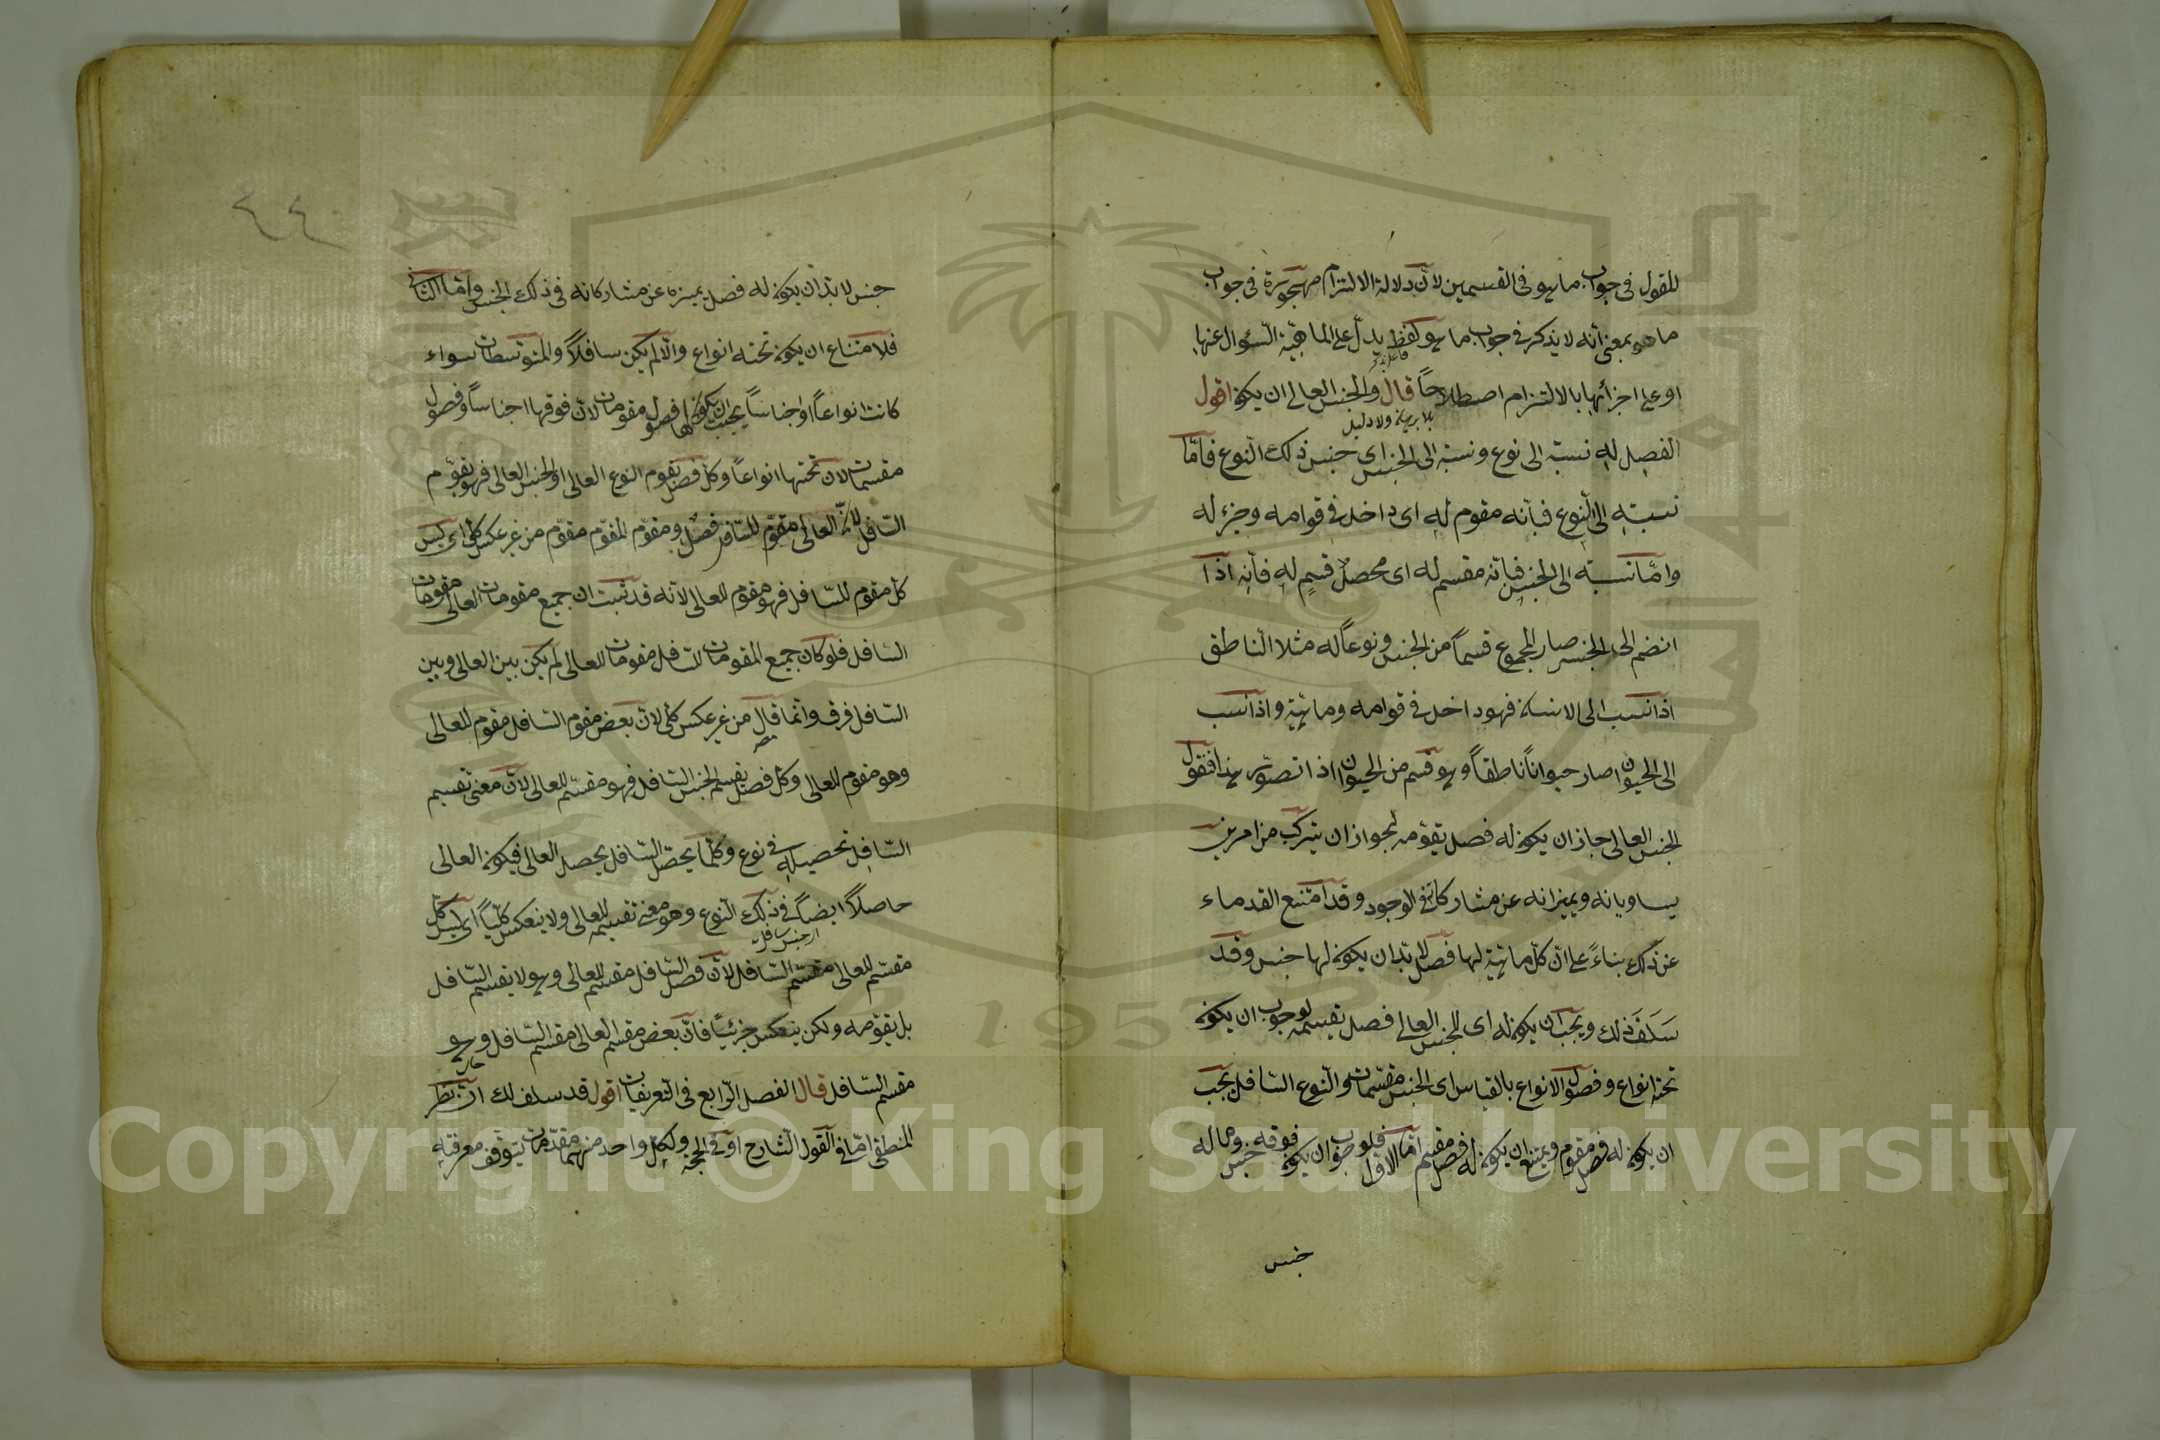 للمقول في جواب ما هو في القسمين لان دلالة الالتزام مهجورة في جواب
ما هو بمعنى انه لا يذكر في جواب ما هو لفظ يدل على الماهية السؤال عنها
او على اجزائها بالالتزام اصطلاحاً قال والجنس العالى ان يكون اقول
بلا برهان ولا دليل
الفصل له نسبة الى نوع ونسبة الى الجنس اى جنس ذلك النوع فامّا
نسبته الى النوع فبانه مقوم له اى داخل في قوامه وجزء له
وامّا نسبته الى الجنس فبانّه مقسم له اى محصل قسمٍ له فانه اذا
انضم الى الجنس صار المجموع قسماً من الجنس ونوعاً له مثلا الناطق
اذا نسب الى الانسان فهو داخل في قوامه وماهيته واذا نسب
الى الحيوان صار حيواناً ناطقاً وهو قسم من الحيوان اذا تصور هذا فنقول
الجنس العالى جاز ان يكون له فصل يقوّمه لجواز ان يتركب من امرين
يساويانه ويميزانه عن مشاركاته في الوجود وقد امتنع القدماء
عن ذلك بناءً على انّ كل ماهية لها فصل لابد ان يكون لها جنس وقد
سَلَفَ ذلك ويجب ان يكون له اى للجنس العالى فصل يقسمه لوجوب ان يكون
تحته انواع وفصول الانواع بالقياس الى الجنس مقسّمات والنوع السّافل يجب
ان يكون له فصل مقوم ويمتنع ان يكون له فصل مقسم امّا الاول فلوجوب ان يكون فوقه جنس وما له
جنس
٤٤
جنس لا بدّ ان يكون له فصل يميزه عن مشاركاته في ذلك الجنس وامّا الثاني
فلامتناع ان يكون تحته انواع والّا لم يكن سافلاً والمتوسّطات سواء
كانت انواعاً او اجناساً يجب ان يكون لها فصول مقومات لان فوقها اجناساً وفصول
مقسمات لان تحتها انواعاً وكل فصل يقوم النوع العالى او الجنس العالى فهو يقوّم
السّافل لانّ العالى مقوّم للسّافل ومقوّم المقوّم مقوّم من غير عكس كلى اى ليس
كل مقوم للسّافل فهو مقوم للعالى لانه قد ثبت ان جميع مقومات العالى مقومات
السّافل فلو كان جميع المقومات للسّافل مقومات للعالى لم يكن بين العالى وبين
السّافل فرق وانما قال من غير عكس كلى لان بعض مقوم السّافل مقوم للعالى
وهو مقوم للعالى وكل فصل يقسم الجنس السّافل فهو مقسّم للعالى لانّ معنى تقسيم
السّافل تحصيله في نوع وكلّما يحصّل السّافل يحصل العالى فيكون العالى
حاصلاً ايضاً في ذلك النوع وهو معنى تقسيمه للعالى ولا ينعكس كلّياً اى ليس كل
مقسّم للعالى مقسّم السّافل لانّ فصل السّافل مقسّم للعالى وهو لا يقسم السّافل
بل يقوّمه ولكن ينعكس جزئياً فانّ بعض مقسم العالى مقسم السّافل وهو
مقسم السّافل قال الفصل الرّابع في التّعريفات اقول قد سلف لك ان نظر
المنطقى امّا في القول الشّارح او في الحجة ولكل واحد منهما مقدّمات يتوقف معرفته